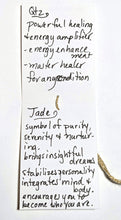 Qtz,
powerful healing
& energy amplifier
- energy enhance
ment
- master healer
for any condition
Jade,
symbol of purity,
serenity & nurtur
ing.
brings insightful
dreams
stabilizes personality
integrates mind &
body.
encourages you to
become who you are.